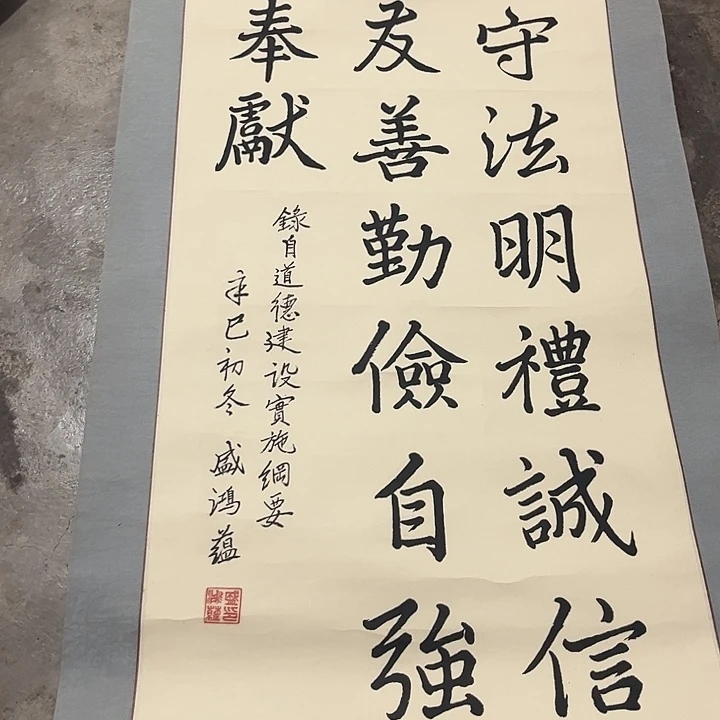 守法明禮誠信
友善勤儉自強
奉獻
錄自道德建设實施綱要
辛巳初冬 盛鴻蕴